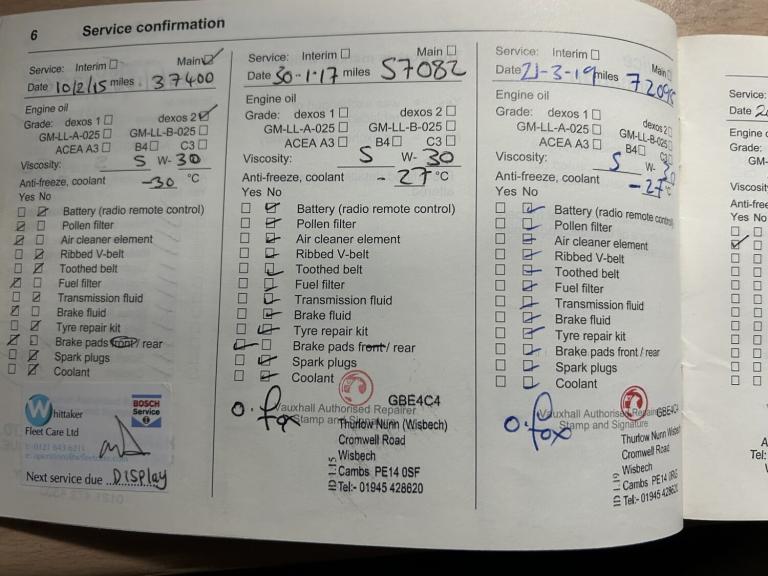 6 Service confirmation
Service: Interim Main
Date 10/2/15 miles 37400
Engine oil
Grade: dexos 1 dexos 2
GM-LL-A-025 GM-LL-B-025
ACEA A3 B4 C3
Viscosity: 5 W- 30
Anti-freeze, coolant -30 °C
Yes No
Battery (radio remote control)
Pollen filter
Air cleaner element
Ribbed V-belt
Toothed belt
Fuel filter
Transmission fluid
Brake fluid
Tyre repair kit
Brake pads front / rear
Spark plugs
Coolant
Whittaker
Fleet Care Ltd
BOSCH
Service
Next service due DISPLAY
Service: Interim Main
Date 30-1-17 miles 57082
Engine oil
Grade: dexos 1 dexos 2
GM-LL-A-025 GM-LL-B-025
ACEA A3 B4 C3
Viscosity: 5 W- 30
Anti-freeze, coolant -27 °C
Yes No
Battery (radio remote control)
Pollen filter
Air cleaner element
Ribbed V-belt
Toothed belt
Fuel filter
Transmission fluid
Brake fluid
Tyre repair kit
Brake pads front / rear
Spark plugs
Coolant
GBE4C4
O. fox
Vauxhall Authorised Repairer
Stamp and Signature
Thurlow Nunn (Wisbech)
Cromwell Road
Wisbech
Cambs PE14 0SF
Tel:- 01945 428620
Service: Interim Main
Date 21-3-19 miles
Engine oil
Grade: dexos 1 dexos 2
GM-LL-A-025 GM-LL-B-025
ACEA A3 B4 C3
Viscosity: 5 W- 30
Anti-freeze, coolant -27 °C
Yes No
Battery (radio remote control)
Pollen filter
Air cleaner element
Ribbed V-belt
Toothed belt
Fuel filter
Transmission fluid
Brake fluid
Tyre repair kit
Brake pads front / rear
Spark plugs
Coolant
GBE4C4
O. fox
Vauxhall Authorised
Stamp and Signature
Thurlow Nunn
Cromwell Road
Wisbech
Cambs PE14
Tel:- 01945 428620
Service:
Date
Engine
Grade:
GM-
Viscosity
Anti-free
Yes No